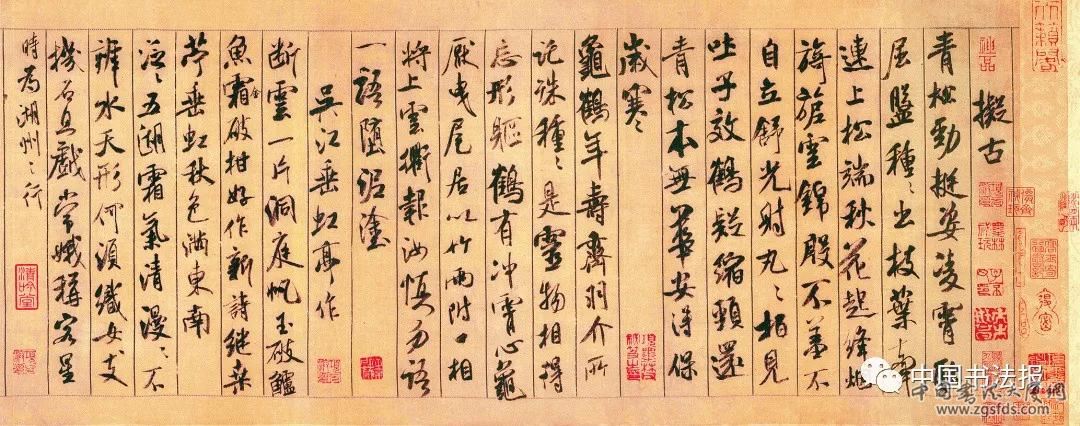 擬古
青松勁挺姿凌霄恥
屈盤種〻出枝葉牽
連上松端秋花起絳烟
旖旎雲錦殷不羞不
自立舒光射丸〻栢見
吐子效鶴疑縮頸還
青松本無華安得保
歲寒〻
龜鶴年壽齊羽介所
託殊種〻是靈物相得
忘形軀鶴有冲霄心龜
厭曳尾居以竹兩附口相
將上雲衢報汝慎勿語
一語墮泥塗
吳江垂虹亭作
断雲一片洞庭帆玉破鱸
魚霜金破柑好作新詩继桑
苧垂虹秋色滿東南
泛〻五湖霜氣清漫〻不
辨水天形何須織女支
機石且戲常娥稱客星
時為湖州之行
清吟堂
中国书法报
www.zgsfds.com